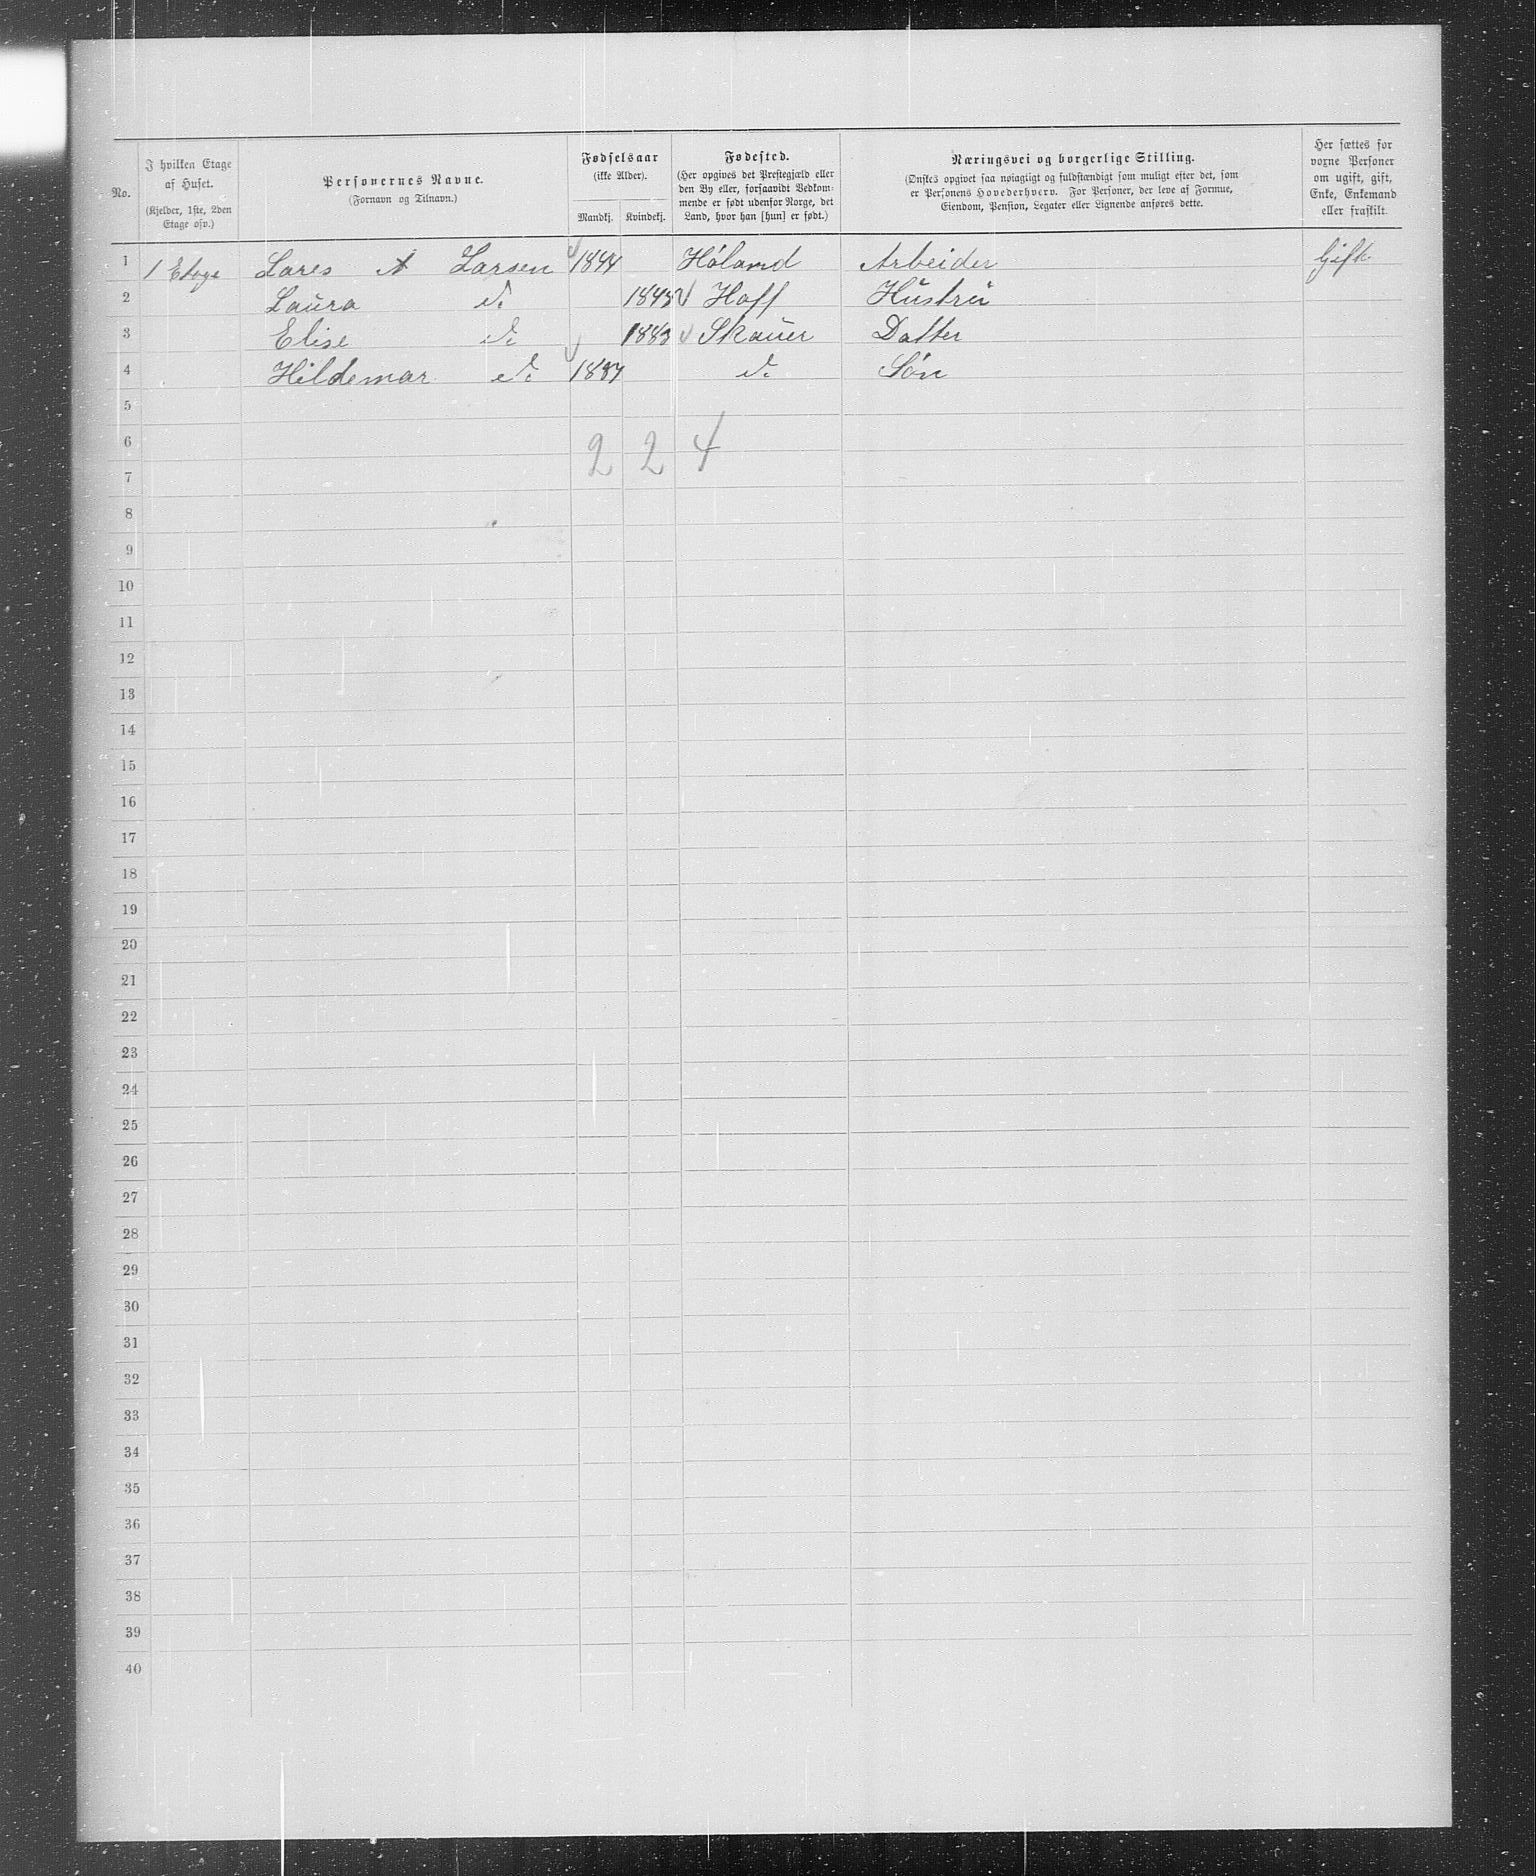 No.
I hvilken Etage af Huset.
(Kjelder, 1ste, 2den Etage osv.)
Personernes Navne.
(Fornavn og Tilnavn.)
Fødselsaar
(ikke Alder).
Mandkj. Kvindekj.
Fødested.
(Her opgives det Prestegjæld eller
den By eller, forsaavidt Vedkom-
mende er født udenfor Norge, det
Land, hvor han [hun] er født.)
Næringsvei og borgerlige Stilling.
(Ønskes opgivet saa nøiagtigt og fuldstændigt som muligt efter det, som
er Personens Hovederhverv. For Personer, der leve af Formue,
Eiendom, Pension, Legater eller Lignende anføres dette.
Her sættes for
voxne Personer
om ugift, gift,
Enke, Enkemand
eller fraskilt.
1 1 Etage Lares A Larsen 1844 Høland Arbeider Gift
2 Laura do 1843 Hoff Hüstrü
3 Elise do 1883 Skauer Datter
4 Hildemar do 1887 do Søn
5
6 2 2 4
7
8
9
10
11
12
13
14
15
16
17
18
19
20
21
22
23
24
25
26
27
28
29
30
31
32
33
34
35
36
37
38
39
40